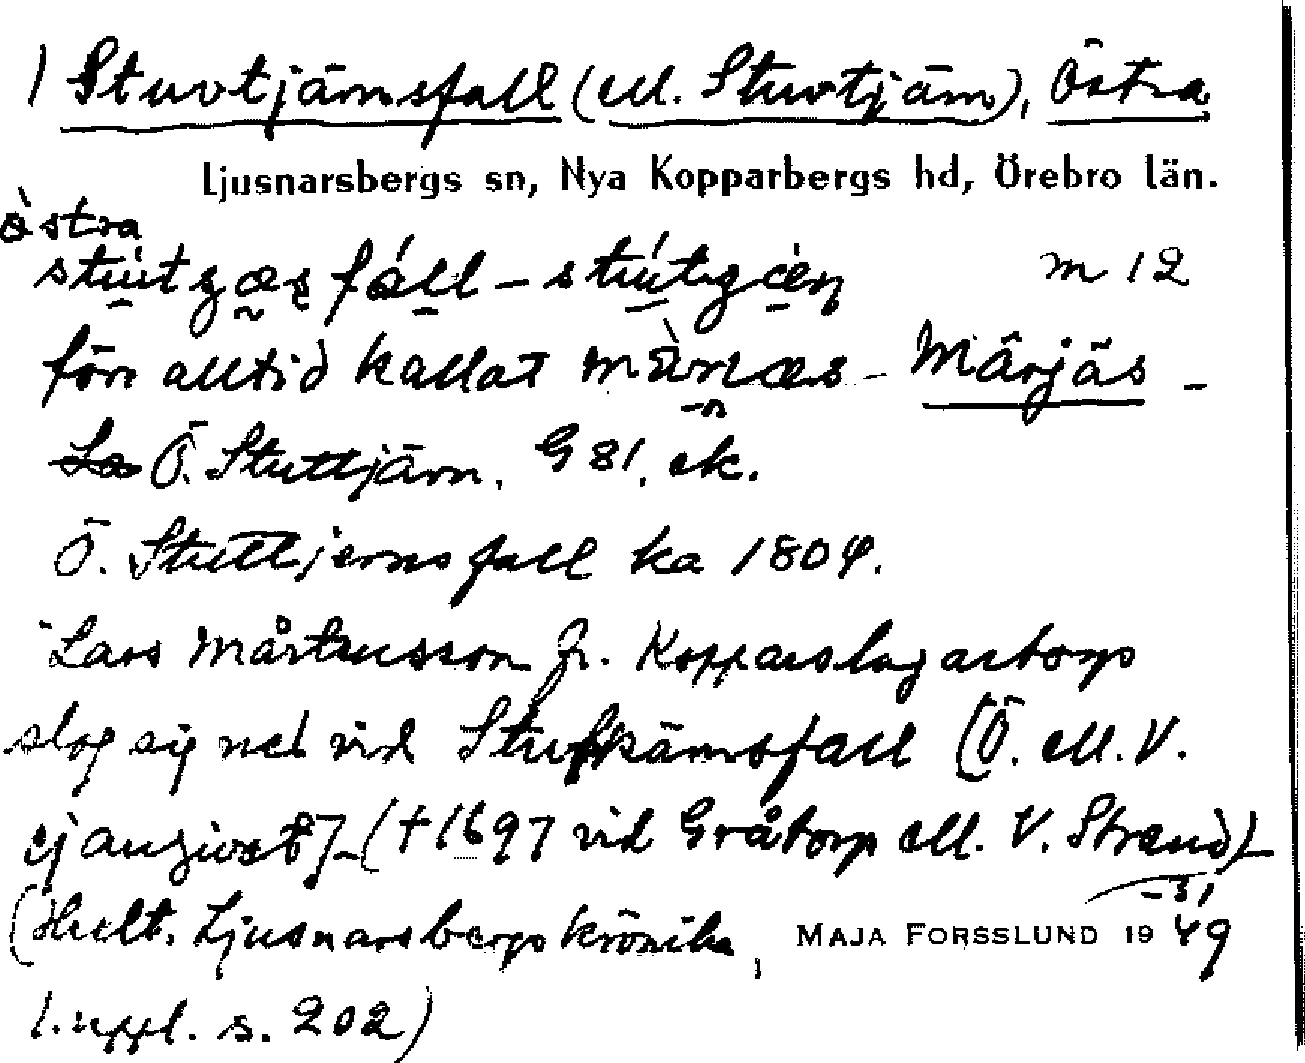 1 Stuvtjärnsfall (ell. Stuvtjärn), Östra
Ljusnarsbergs sn, Nya Kopparbergs hd, Örebro län.
östra
m 12
förr alltid kallat - Mårjäs -
Ö. Stuttjärn, G 81, ek.
Ö. Stuttjernsfall ka 1804.
"Lars Mårtensson fr. Kopparslagartorp
slog sig ned vid (Ö. ell. V.
ej angivet) - († 1697 vid Gråtorp ell. V. Strand) -
(Hult. Ljusnarsbergs krönika,
-51
MAJA FORSSLUND 1949
1. uppl. s. 202)